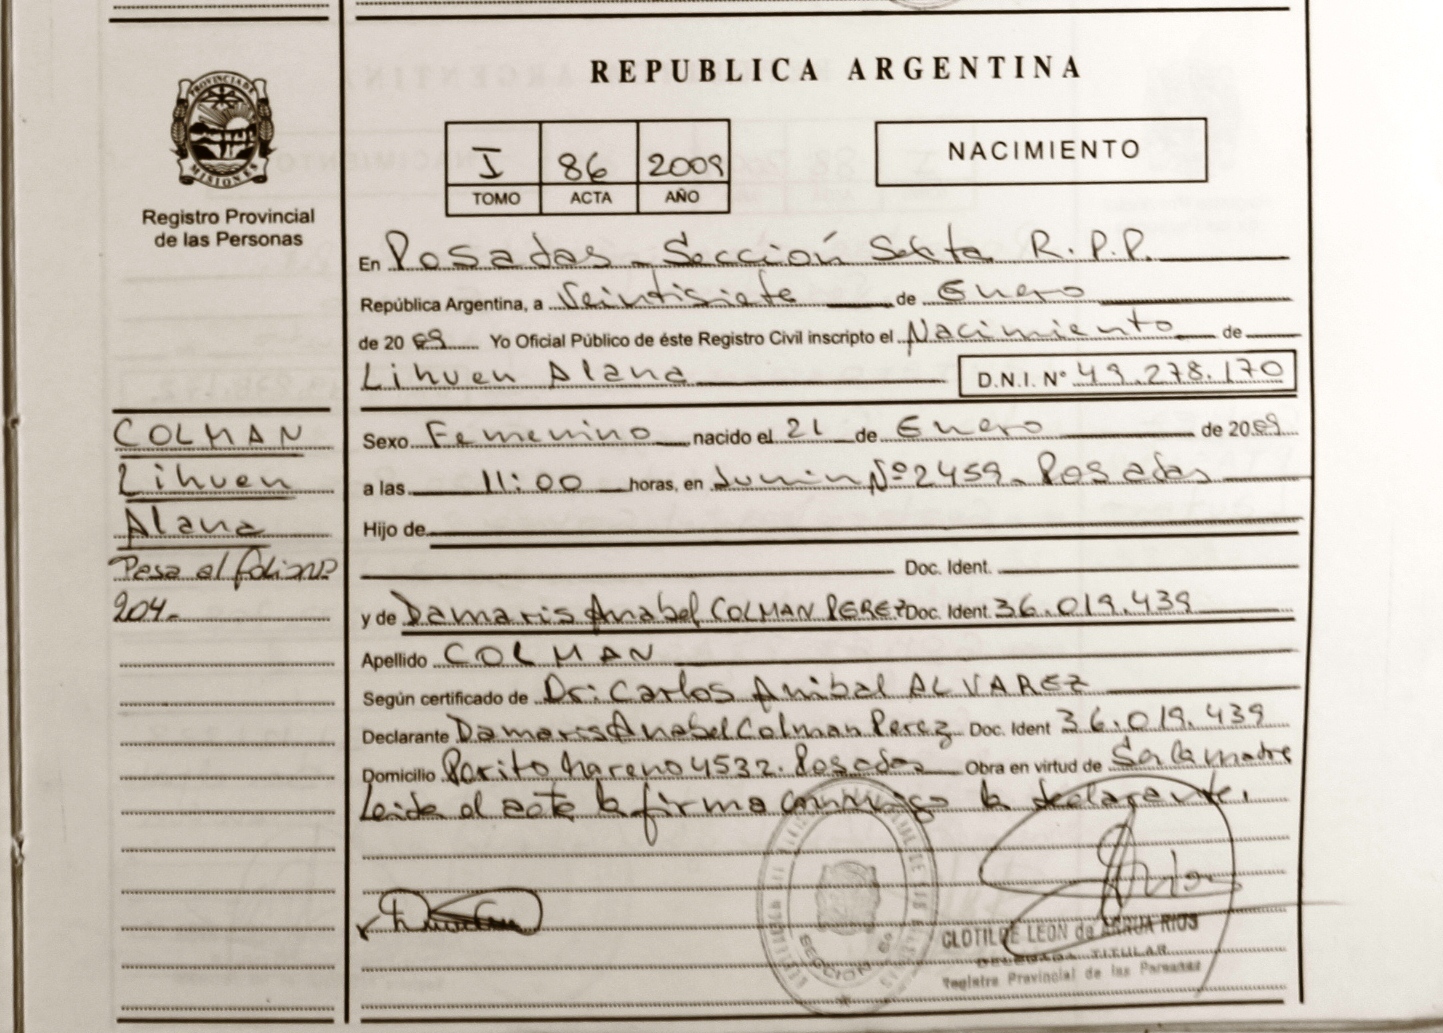 REPUBLICA ARGENTINA
PROVINCIA DE
MISIONES
Registro Provincial
de las Personas
I 86 2009
TOMO ACTA AÑO
NACIMIENTO
En Posadas - Sección Sexta R.P.P.
República Argentina, a Veintisiete de Enero
de 2009 Yo Oficial Público de éste Registro Civil inscripto el Nacimiento de
Lihuen Alana D.N.I. Nº 49.278.170
COLMAN
Lihuen
Alana
Pasa al folio Nº
204.-
Sexo Femenino nacido el 21 de Enero de 2009
a las 11:00 horas, en Junin Nº 2459 - Posadas
Hijo de
Doc. Ident.
y de Damaris Anabel COLMAN PEREZ Doc. Ident. 36.019.439
Apellido COLMAN
Según certificado de Dr: Carlos Anibal ALVAREZ
Declarante Damaris Anabel Colman Perez Doc. Ident 36.019.439
Domicilio Perito Moreno 4532. Posadas Obra en virtud de Ser la madre
Leida el acta la firma conmigo la declarante.
SECCION 6º
CLOTILDE LEON de ARRUA RIOS
DELEGADA TITULAR
Registro Provincial de las Personas